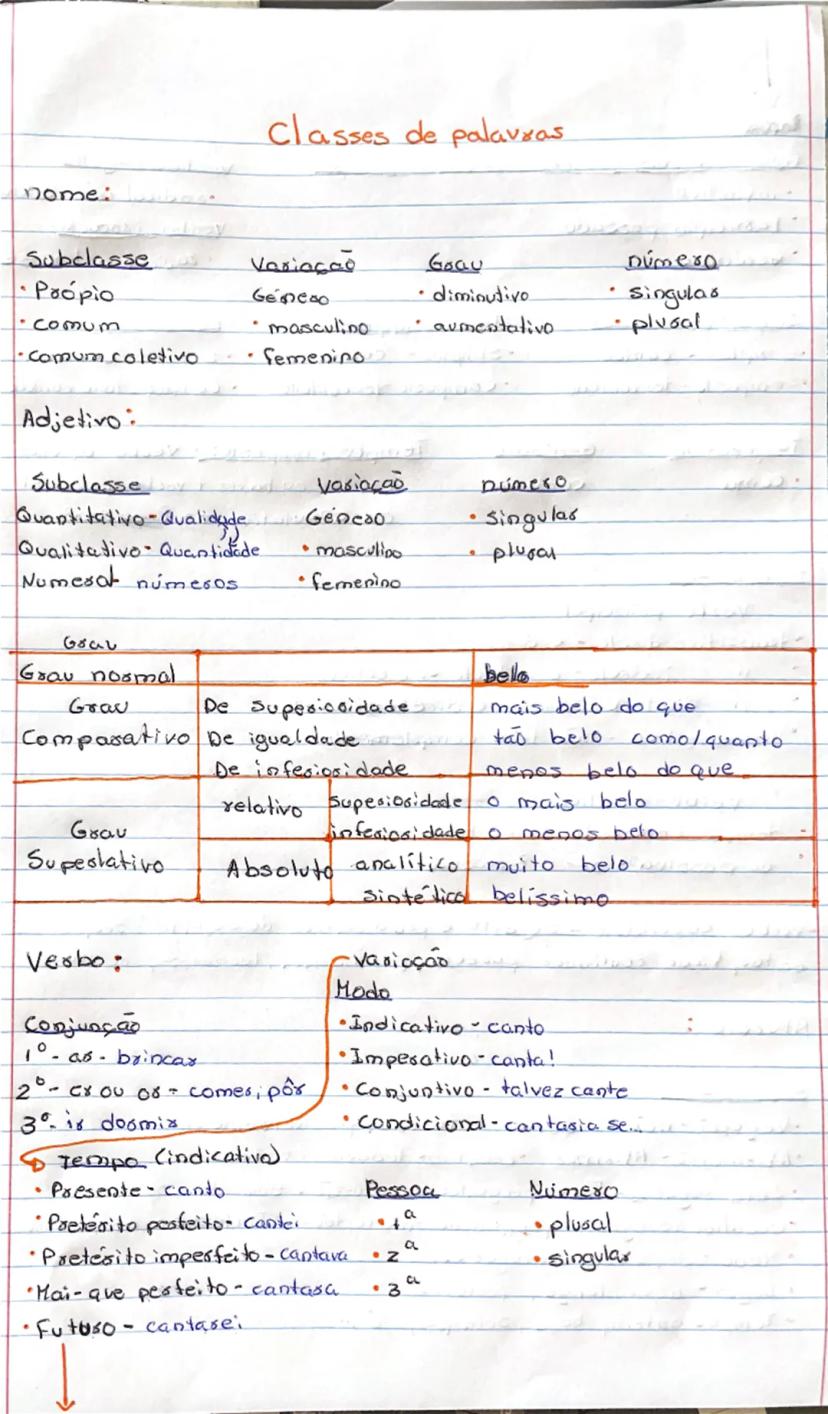 Classes de palavras
nome:
Subclasse Variação Grau número
• Própio Género • diminutivo • singular
• comum • masculino • aumentativo • plural
• comum coletivo • femenino
Adjetivo:
Subclasse Variação número
Quantitativo - Qualidade Género • singular
Qualitativo - Quantidade • masculino • plural
Numeral números • femenino
Grau
Grau normal belo
Grau De superioridade mais belo do que
Comparativo De igualdade tão belo como/quanto
De inferioridade menos belo do que
relativo superioridade o mais belo
Grau inferioridade o menos belo
Superlativo Absoluto analítico muito belo
sintético belíssimo
Verbo: Variação
Modo
Conjunção • Indicativo - canto
1º - ar - brincar • Imperativo - canta!
2º - er ou or - comer, pôr • Conjuntivo - talvez cante
3º - ir dormir • Condicional - cantaria se...
Tempo (indicativo)
• Presente - canto Pessoa Número
• Pretérito perfeito - cantei • 1ª • plural
• Pretérito imperfeito - cantava • 2ª • singular
• Mai-que perfeito - cantara • 3ª
• Futuro - cantarei